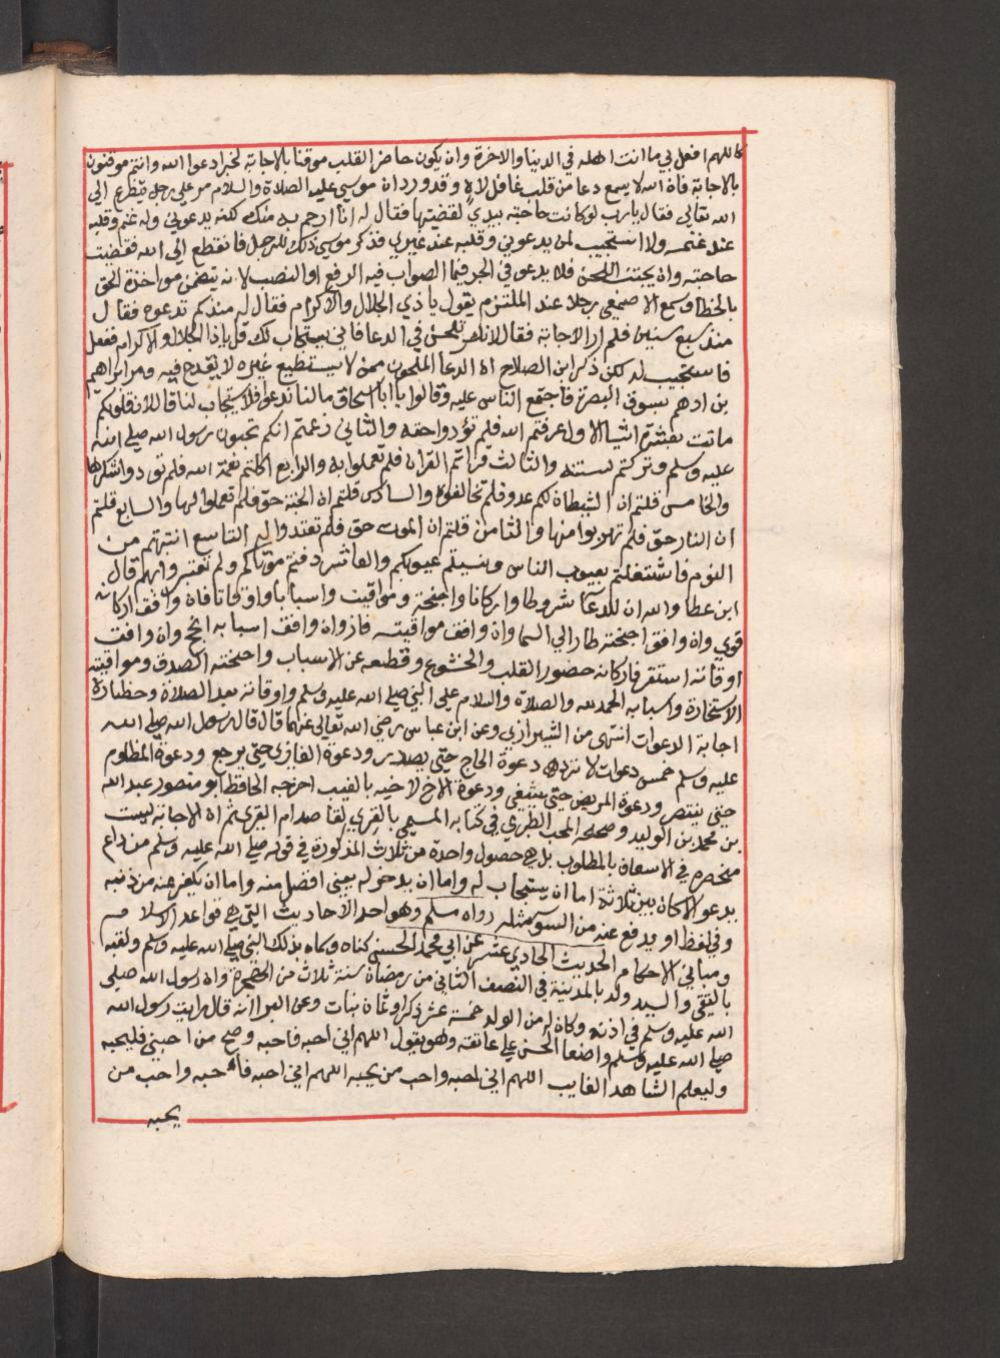 كاللهم افعل بي ما انت اهله في الدنيا والاخرة وان يكون حاضر القلب موقنا بالاجابة لخبر ادعوا الله وانتم موقنون
بالاجابة فان الله لا يسمع دعا من قلب غافل لاه وقد ورد ان موسي عليه الصلاة والسلام مر علي رجل يتضرع الي
الله تعالي فقال يارب لو كانت حاجته بيدي لقضيتها فقال له انا ارحم به منك لكنه يدعوني وله غنم وقلبه
عند غنمه ولا استجيب لمن يدعوني وقلبه عند غيري فذكر موسي ذلك للرجل فانقطع الي الله فقضيت
حاجته وان يجتنب اللحن فلا يدعو في الجر فيما الصواب فيه الرفع او النصب لانه يتضمن مواخذة الحق
بالخطا وسمع الاصمعي رجلا عند الملتزم يقول يا ذي الجلال والاكرام فقال له منذ كم تدعوه فقال
منذ سبع سنين فلم ار الاجابة فقال انك تلحن في الدعا فاني يستجاب لك قل يا ذا الجلال والاكرام ففعل
فاستجيب له لكن ذكر ابن الصلاح ان الدعا الملحون ممن لا يستطيع غيره لا يقدح فيه ومر ابراهيم
بن ادهم بسوق البصرة فاجتمع الناس عليه وقالوا يا ابا اسحاق مالنا ندعوا فلا يستجاب لنا قال لان قلوبكم
ماتت بعشرة اشيا الاول عرفتم الله فلم تؤدوا حقه والثاني زعمتم انكم تحبون رسول الله صلي الله
عليه وسلم وتركتم سنته والثالث قراتم القران فلم تعملوا به والرابع اكلتم نعمة الله فلم تودوا شكرها
والخامس قلتم ان الشيطان لكم عدو فلم تخالفوه والسادس قلتم ان الجنة حق فلم تعملوا لها والسابع قلتم
ان النار حق فلم تهربوا منها والثامن قلتم ان الموت حق فلم تعتدوا له التاسع انتبهتم من
النوم فاشتغلتم بعيوب الناس ونسيتم عيوبكم والعاشر دفنتم موتاكم ولم تعتبروا بهم قال
ابن عطا والله ان للدعا شروطا واركانا واجنحة ومواقيت واسبابا واوقاتا فان وافق اركانه
قوي وان وافق اجنحته طار الي السما وان وافق مواقيته فاز وان وافق اسبابه انجح وان وافق
اوقاته استقر فاركانه حضور القلب والخشوع وقطعه عن الاسباب واجنحته الصدق ومواقيته
الاستخارة واسبابه الحمد لله والصلاة والسلام علي النبي صلي الله عليه وسلم واوقاته بعد الصلاة وحظ
اجابة الدعوات انتهى من الشيرازي وعن ابن عباس رضي الله تعالي عنهما قال قال رسول الله صلي الله
عليه وسلم خمس دعوات لا ترد دعوة الحاج حتي يصدر ودعوة الغازي حتي يرجع ودعوة المظلوم
حتي ينتصر ودعوة المريض حتي يشفي ودعوة الاخ لاخيه بالغيب اخرجه الحافظ ابو منصور عبد الله
بن محمد بن الوليد وصححه المحب الطبري في كتابه المسمي بالقري لقاصد ام القري ثم ان الاجابة ليست
منحصرة في الاسعاف بالمطلوب بل هي حصول واحدة من ثلاث المذكورة في قوله صلي الله عليه وسلم من داع
يدعو الا كان بين ثلاثة اما ان يستجاب له واما ان يدخر له يعني افضل منه واما ان يكفر عنه من ذنبه
وفي لفظ او يدفع عنه من السوء مثله رواه مسلم وهو احد الاحاديث التي هي قواعد الاسلام
ومباني الاحكام الحديث الحادي عشر عن ابي محمد الحسن كناه وسماه بذلك النبي صلي الله عليه وسلم ولقبه
بالتقي والسيد ولد بالمدينة في النصف الثاني من رمضان سنة ثلاث من الهجرة واذن رسول الله صلي
الله عليه وسلم في اذنه وكان له من الولد خمسة عشر ذكرا وثمان بنات وعن البرا انه قال رايت رسول الله
صلي الله عليه وسلم واضعا الحسن علي عاتقه وهو يقول اللهم اني احبه فاحبه وصح من احبني فليحبه
وليعلم الشاهد الغايب اللهم اني احبه واحب من يحبه اللهم اني احبه فاحبه واحب من
يحبه